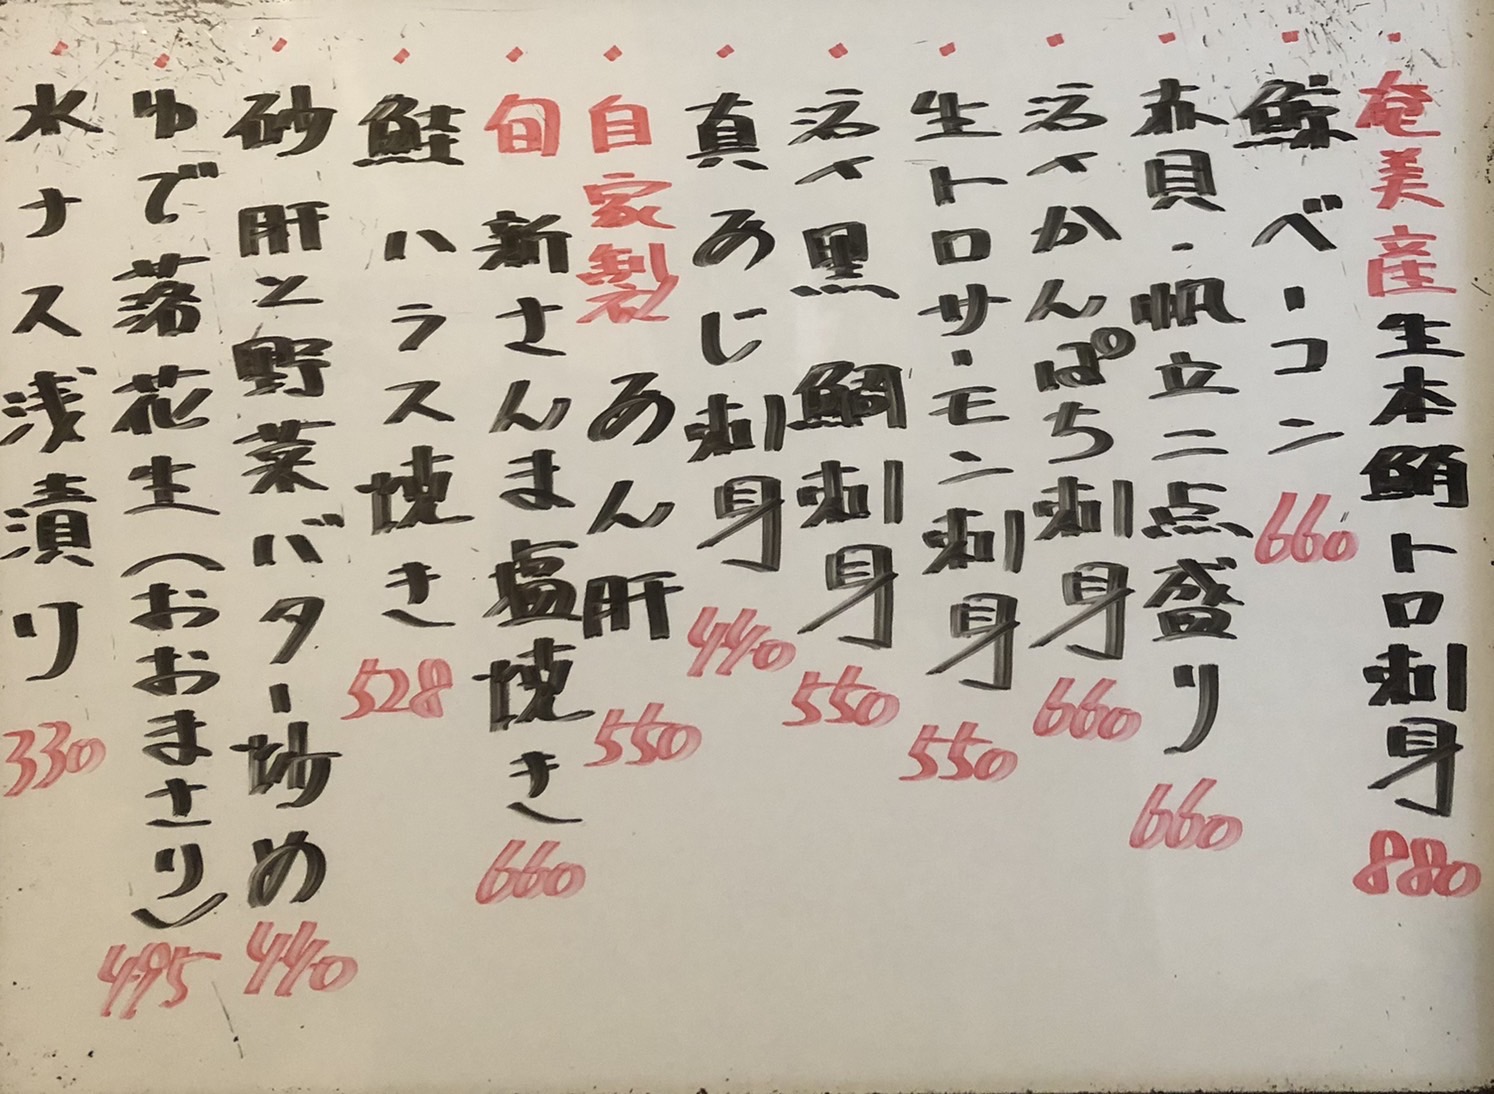 ・奄美産生本鮪トロ刺身 880
・鯨ベーコン 660
・赤貝・帆立二点盛り 660
・活〆かんぱち刺身 660
・生トロサーモン刺身 550
・活〆黒鯛刺身 550
・真あじ刺身 440
・自家製あん肝 550
・旬新さんま塩焼き 660
・鮭ハラス焼き 528
・砂肝と野菜バター炒め 440
・ゆで落花生（おおまさり） 495
・水ナス浅漬り 330